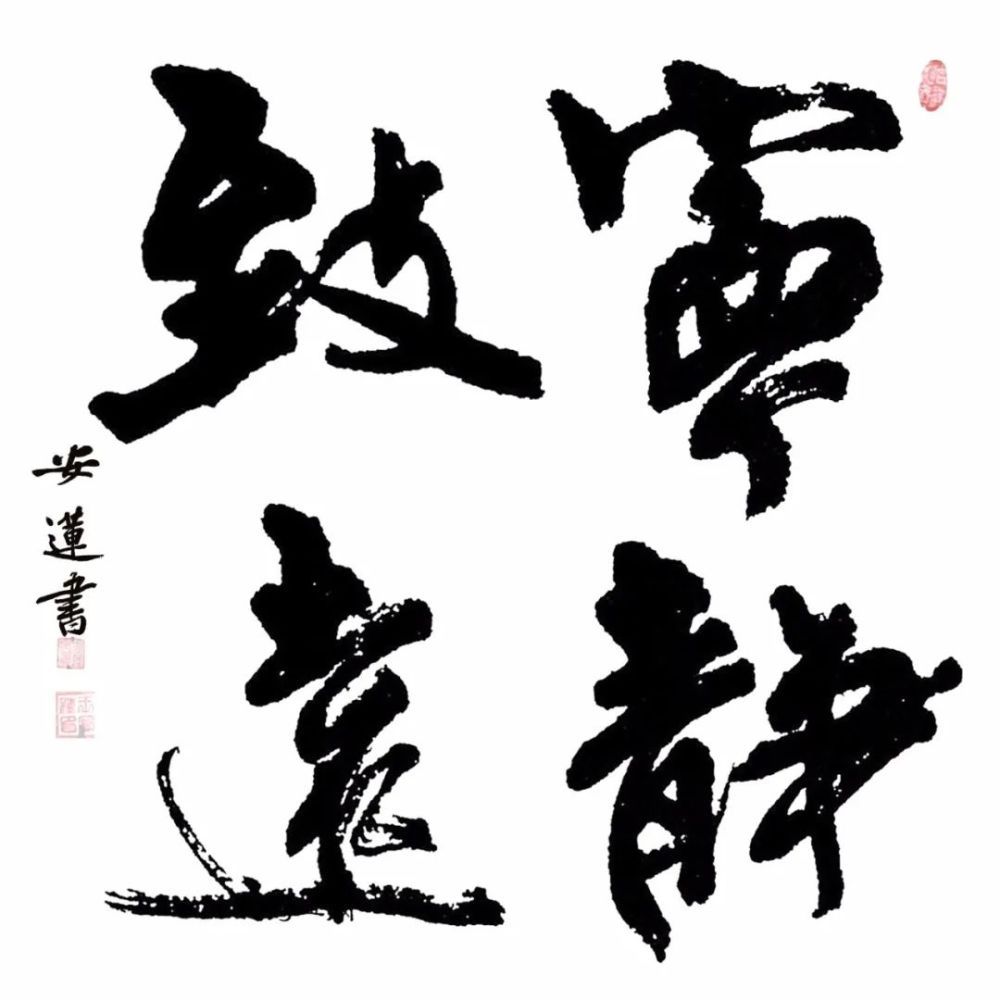 寧靜
致遠
安蓮書